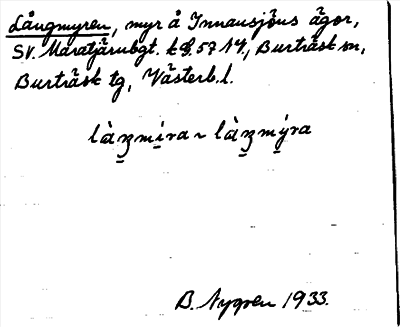 Långmyren, myr å Innansjöns ägor,
SV. Maratjärnbgt. k 9. 57 14., Burträsk sn,
Burträsk tg, Västerb. l.
làŋmìra ~ làŋmýra
B. Nygren 1933.